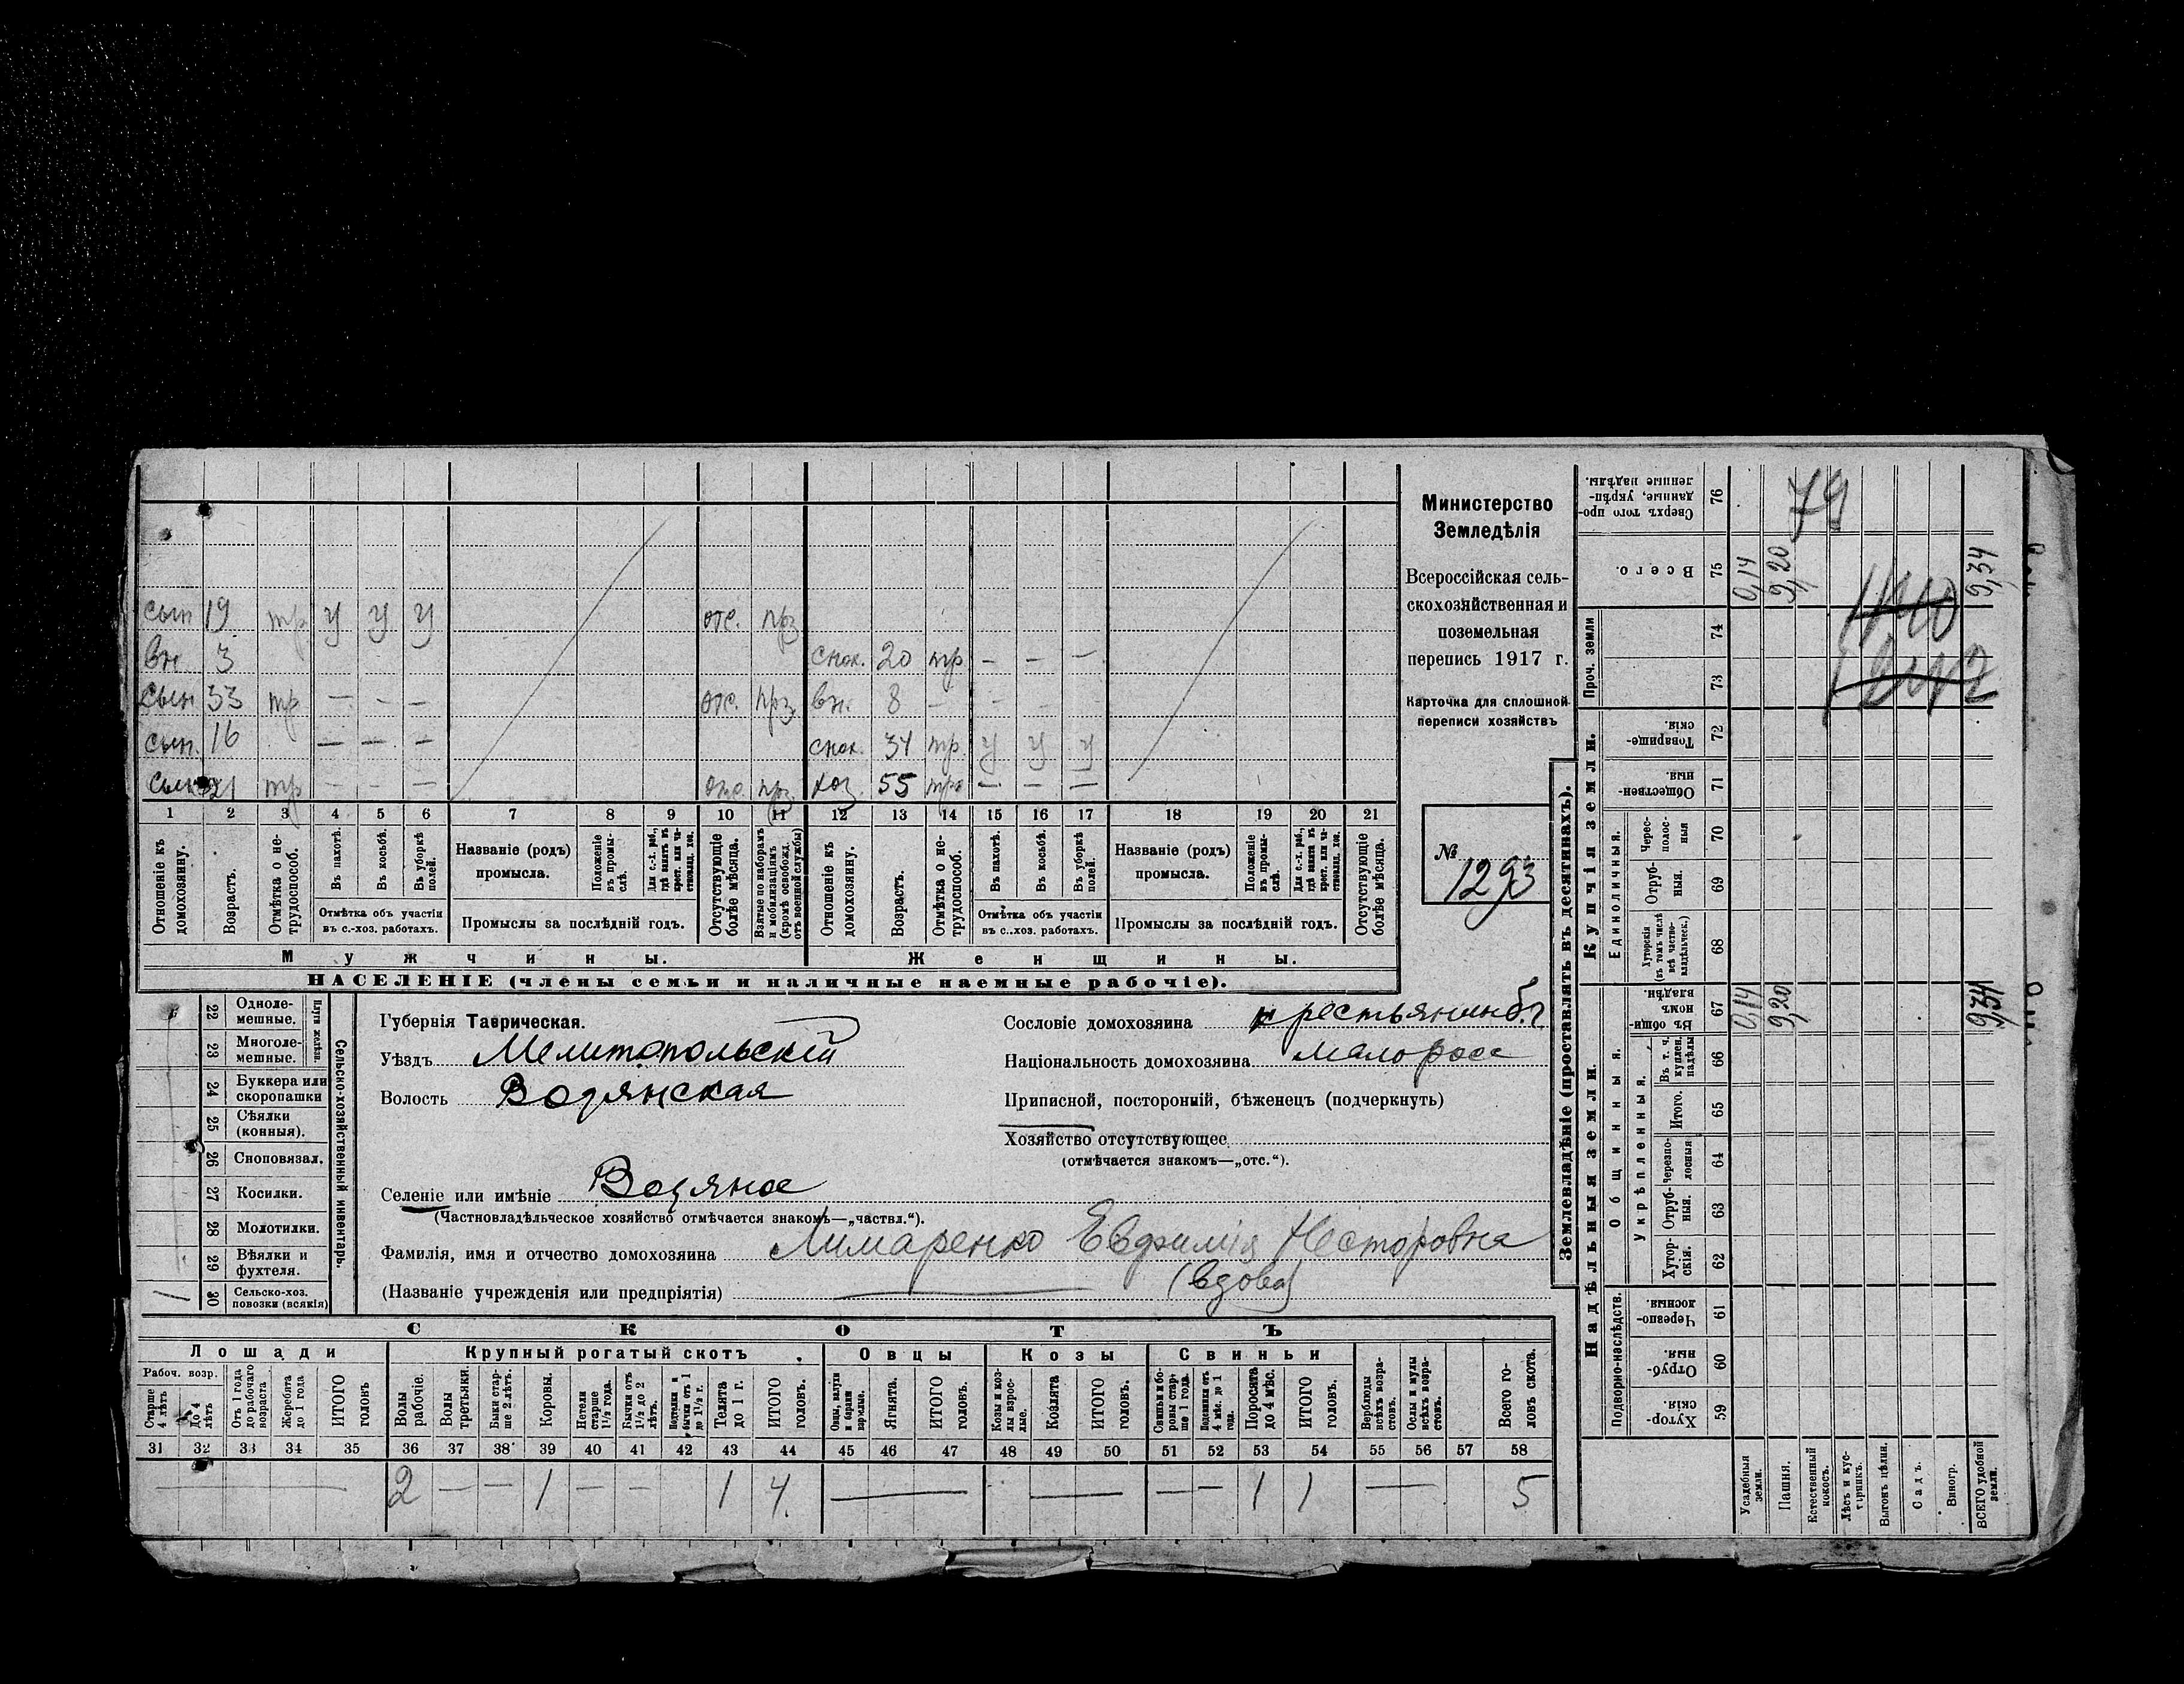 сын 19 тр. у у у отс. прз.
вн 3 снох. 20 тр — — —
сын 33 тр — — — отс. прз. вн. 8 — — —
сын. 16 — — — снох. 34 тр. у у у
сын 21 тр — — — отс. прз. хоз. 55 тр — — —
1 2 3 4 5 6 7 8 9 10 11 12 13 14 15 16 17 18 19 20 21
Отношеніе къ домохозяину.
Возрастъ.
Отмѣтка о не-трудоспособ.
Въ пахотѣ.
Въ косьбѣ.
Въ уборкѣ полей.
Отмѣтка объ участіи
въ с.-хоз. работахъ.
Названіе (родъ)
промысла.
Положеніе въ промы-слѣ.
Для с.-х. раб., гдѣ занятъ въ крест. или ча-ствовлад. хоз.
Промыслы за послѣдній годъ.
Отсутствующіе болѣе мѣсяца.
Взятые по наборамъ и мобилизаціямъ (кромѣ освобожд. отъ военной службы)
Отношеніе къ домохозяину.
Возрастъ.
Отмѣтка о не-трудоспособ.
Въ пахотѣ.
Въ косьбѣ.
Въ уборкѣ полей.
Отмѣтка объ участіи
въ с.-хоз. работахъ.
Названіе (родъ)
промысла.
Положеніе въ промы-слѣ.
Для с.-х. раб., гдѣ занята въ крест. или ча-ствовлад. хоз.
Промыслы за послѣдній годъ.
Отсутствующіе болѣе мѣсяца.
Мужчины. Женщины.
НАСЕЛЕНІЕ (члены семьи и наличные наемные рабочіе).
Министерство
Земледѣлія
Всероссійская сель-
скохозяйственная и
поземельная
перепись 1917 г.
Карточка для сплошной
переписи хозяйствъ
№
1293
Плуги желѣзн.
22 Одноле-мешные.
23 Многоле-мешные.
24 Буккера или скоропашки
25 Сѣялки (конныя).
26 Сноповязал.
27 Косилки.
28 Молотилки.
29 Вѣялки и фухтеля.
30 Сельско-хоз. повозки (всякія)
Сельско-хозяйственный инвентарь.
Губернія Таврическая.
Уѣздъ Мелитопольскій
Волость Водянская
Селеніе или имѣніе Водяное
(Частновладѣльческое хозяйство отмѣчается знакомъ—„частвл.“).
Фамилія, имя и отчество домохозяина Лимаренко Евфимія Несторовна
(вдова)
(Названіе учрежденія или предпріятія)
Сословіе домохозяина
Національность домохозяина малоросс
Приписной, посторонній, бѣженецъ (подчеркнуть)
Хозяйство отсутствующее
(отмѣчается знакомъ—„отс.“).
СКОТЪ
Лошади Крупный рогатый скотъ Овцы Козы Свиньи
Рабоч. возр.
Старше 4 лѣтъ
До 4 лѣтъ
Отъ 1 года до рабочаго возраста
Жеребята до 1 года
ИТОГО головъ
Волы рабочіе.
Волы третьяки.
Быки стар-ше 2 лѣтъ.
Коровы.
Нетели старше 1½ года.
Бычки отъ 1½ до 2 лѣтъ.
Телята до 1 г.
ИТОГО головъ.
Ягнята.
ИТОГО головъ.
Козы и коз-лы взрос-лые.
Козлята
ИТОГО головъ.
Свиньи и бо-ровы стар-ше 1 года.
Поросята до 4 мѣс.
ИТОГО головъ.
Верблюды всѣхъ возра-стовъ.
Ослы и мулы всѣхъ возра-стовъ.
Всего го-ловъ скота.
31 32 33 34 35 36 37 38 39 40 41 42 43 44 45 46 47 48 49 50 51 52 53 54 55 56 57 58
2 — — 1 — — 1 4 — — — — 1 1 — 5
Землевладѣніе (проставлять въ десятинахъ).
Надѣльныя земли. Купчія земли.
Подворно-наслѣдств.
Общинныя.
Укрѣпленныя.
Единоличныя.
Проч. земли
59 Хутор-скія.
60 Отруб-ныя.
61 Черезпо-лосныя
62 Хутор-скія.
63 Отруб-ныя.
64 Черезпо-лосныя
65 Итого.
66 Въ т. ч. куплен. надѣлы
67 Въ общин-номъ владѣн.
68 Хуторскія (въ томъ числѣ всѣ частно-владѣльческ.)
69 Отруб-ныя.
70 Черес-полос-ныя
71 Обществен-ныя.
72 Товарище-скія.
73
74
75 Всего.
76 Сверхъ того про-данные, укрѣп-ленные надѣлы.
Усадебныя земли.
0,14 0,14
Пашня.
9,20 9,20
Естественный покосъ.
Лѣсъ и кус-тарникъ.
Выгонъ цѣлин.
Садъ.
Виногр.
ВСЕГО удобной земли.
9,34 9,34
79